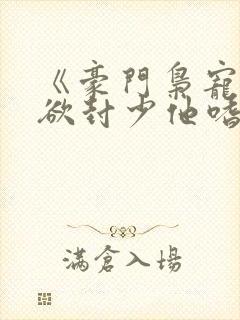 《豪門梟寵
欲封少他嗜
滿倉入場